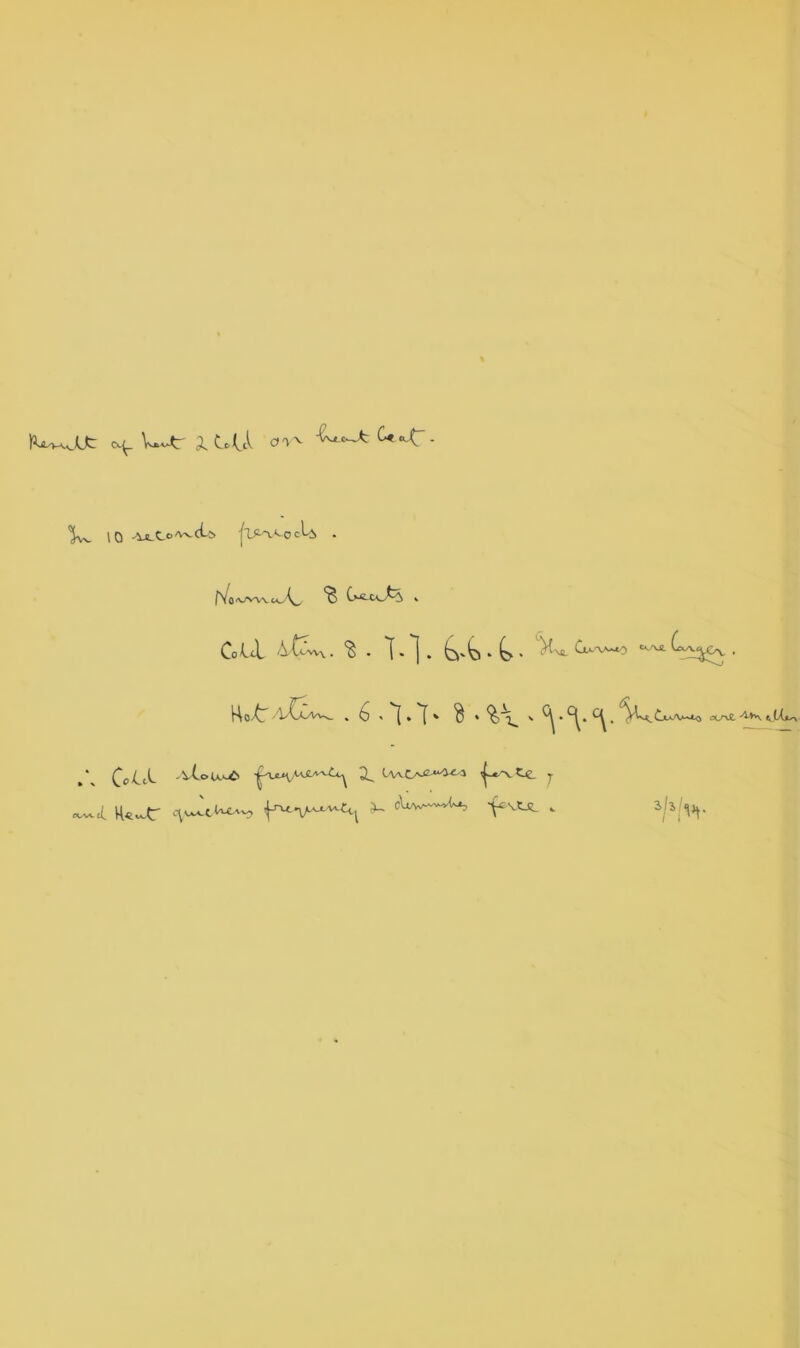 Result of Heat & Cold on heart beat.
In 10 seconds periods.
Normal 8 beats.
Cold stim. 8. 7. 7. 6. 6. 6. The curves are larger.
Hot stim. 6. 7. 7. 8. 8½. 9. 9. 9. The curves are smaller
∴ Cold slows frequency & increases force,
and Heat quickens frequency & diminishes force.
3/3/94.